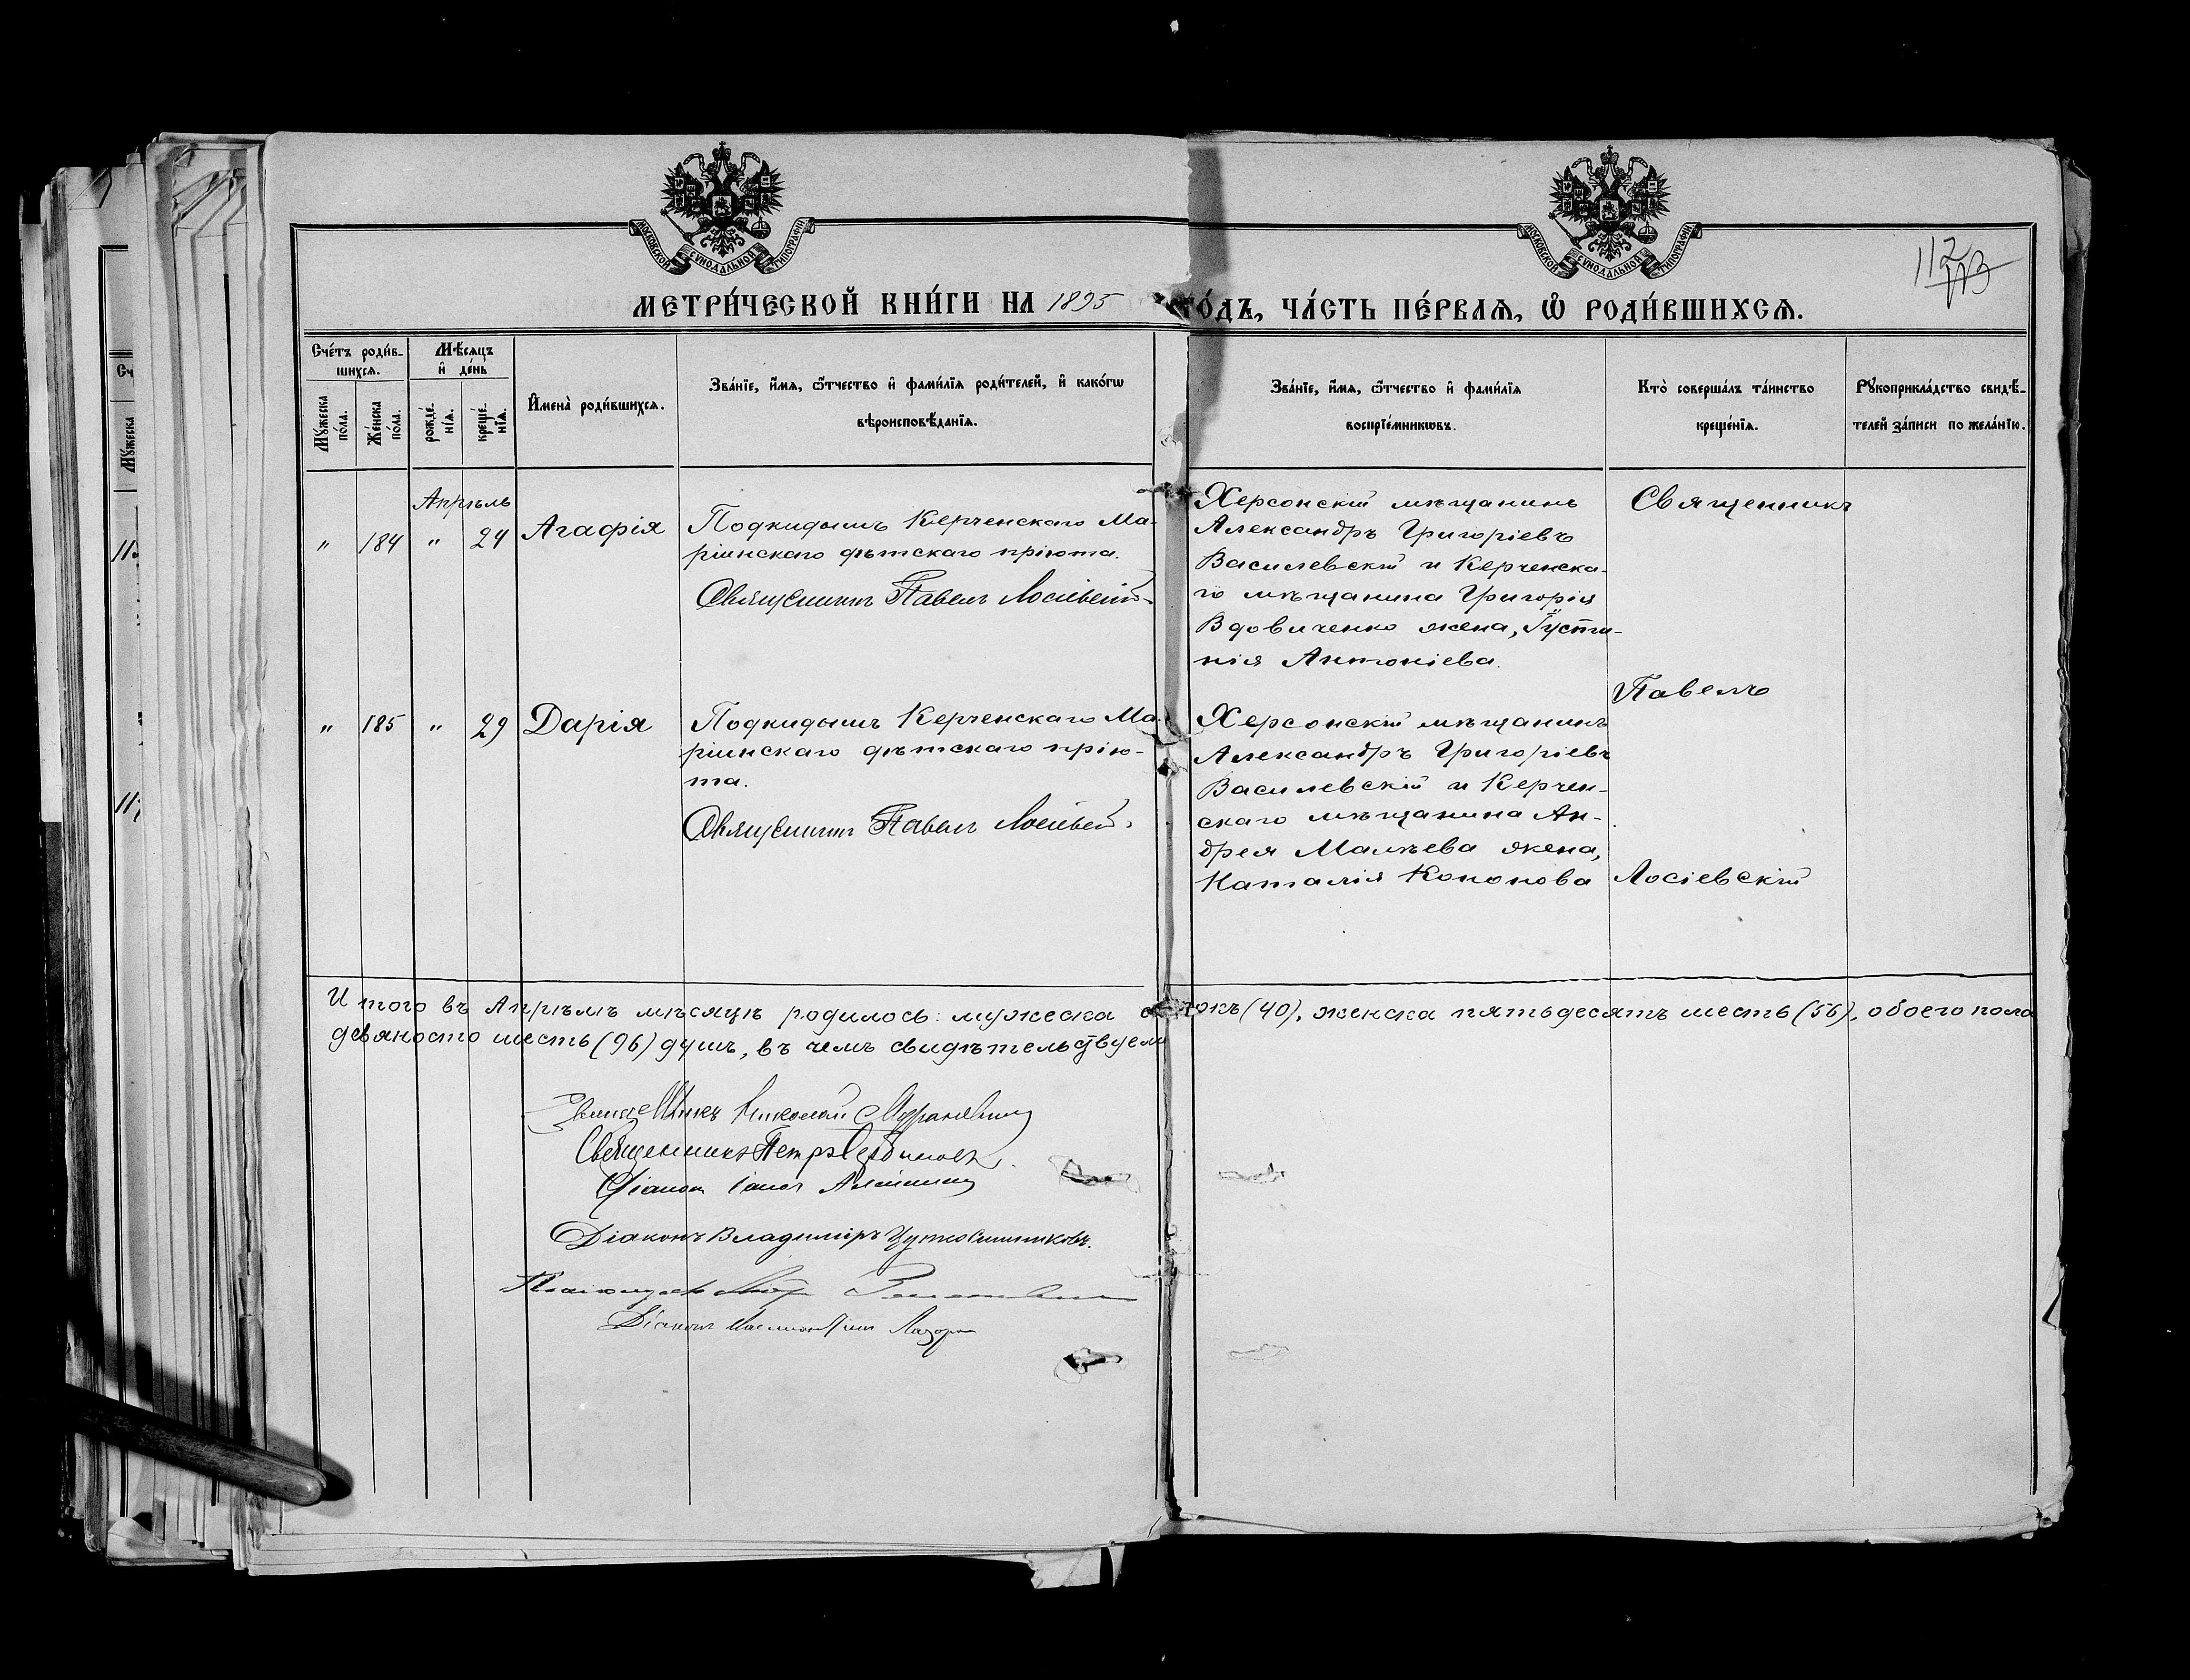 МОСКОВСКОЙ СѴНОДАЛЬНОЙ ТИПОГРАФІИ
МОСКОВСКОЙ СѴНОДАЛЬНОЙ ТИПОГРАФІИ
112
113
МЕТРИ́ЧЕСКОЙ КНИ́ГИ НА 1895 ГО́ДЪ, ЧА́СТЬ ПЕ́РВАѦ, Ѡ РОДИ́ВШИХСѦ.
Сче́тъ роди́в-
шихсѧ.
Мꙋ́жеска по́ла.
Же́нска по́ла.
Мѣ́сѧцъ
и де́нь
рожде́-нїѧ.
креще́-нїѧ.
И҆мена̀ роди́вшихсѧ.
Зва́нїе, и҆́мѧ, ѻ҆́тчество и҆ фами́лїѧ роди́телей, и҆ како́гѡ
вѣроисповѣ́данїѧ.
Зва́нїе, и҆́мѧ, ѻ҆́тчество и҆ фами́лїѧ
воспрїе́мникѡвъ.
Кто̀ соверша́лъ та́инство
креще́нїѧ.
Рꙋкоприкла́дство свидѣ́-
телей за́писи по жела́нїю.
Апрѣль
" 184 " 24 Агафія
Подкидышъ Керченскаго Ма-
ріинскаго дѣтскаго пріюта.
Священникъ Павелъ Лосіевскій
Херсонскій мѣщанинъ
Александръ Григоріевъ
Василевскій и Керченска-
го мѣщанина Григорія
Вдовиченко жена, Іусти-
нія Антоніева.
Священникъ
Павелъ
Лосіевскій
" 185 " 29 Дарія
Подкидышъ Керченскаго Ма-
ріинскаго дѣтскаго прію-
та.
Священникъ Павелъ Лосіевскій
Херсонскій мѣщанинъ
Александръ Григоріевъ
Василевскій и Керчен-
скаго мѣщанина Ан-
дрея Малѣева жена,
Наталія Кононова
Итого въ Апрѣлѣ мѣсяцѣ родилось: мужеска сорокъ (40), женска пятьдесятъ шесть (56), обоего пола
девяносто шесть (96) душъ, въ чемъ свидѣтельствуемъ
Священникъ Николай
Священникъ Петръ Сербиновъ
Діаконъ
Діаконъ Владиміръ
Діаконъ